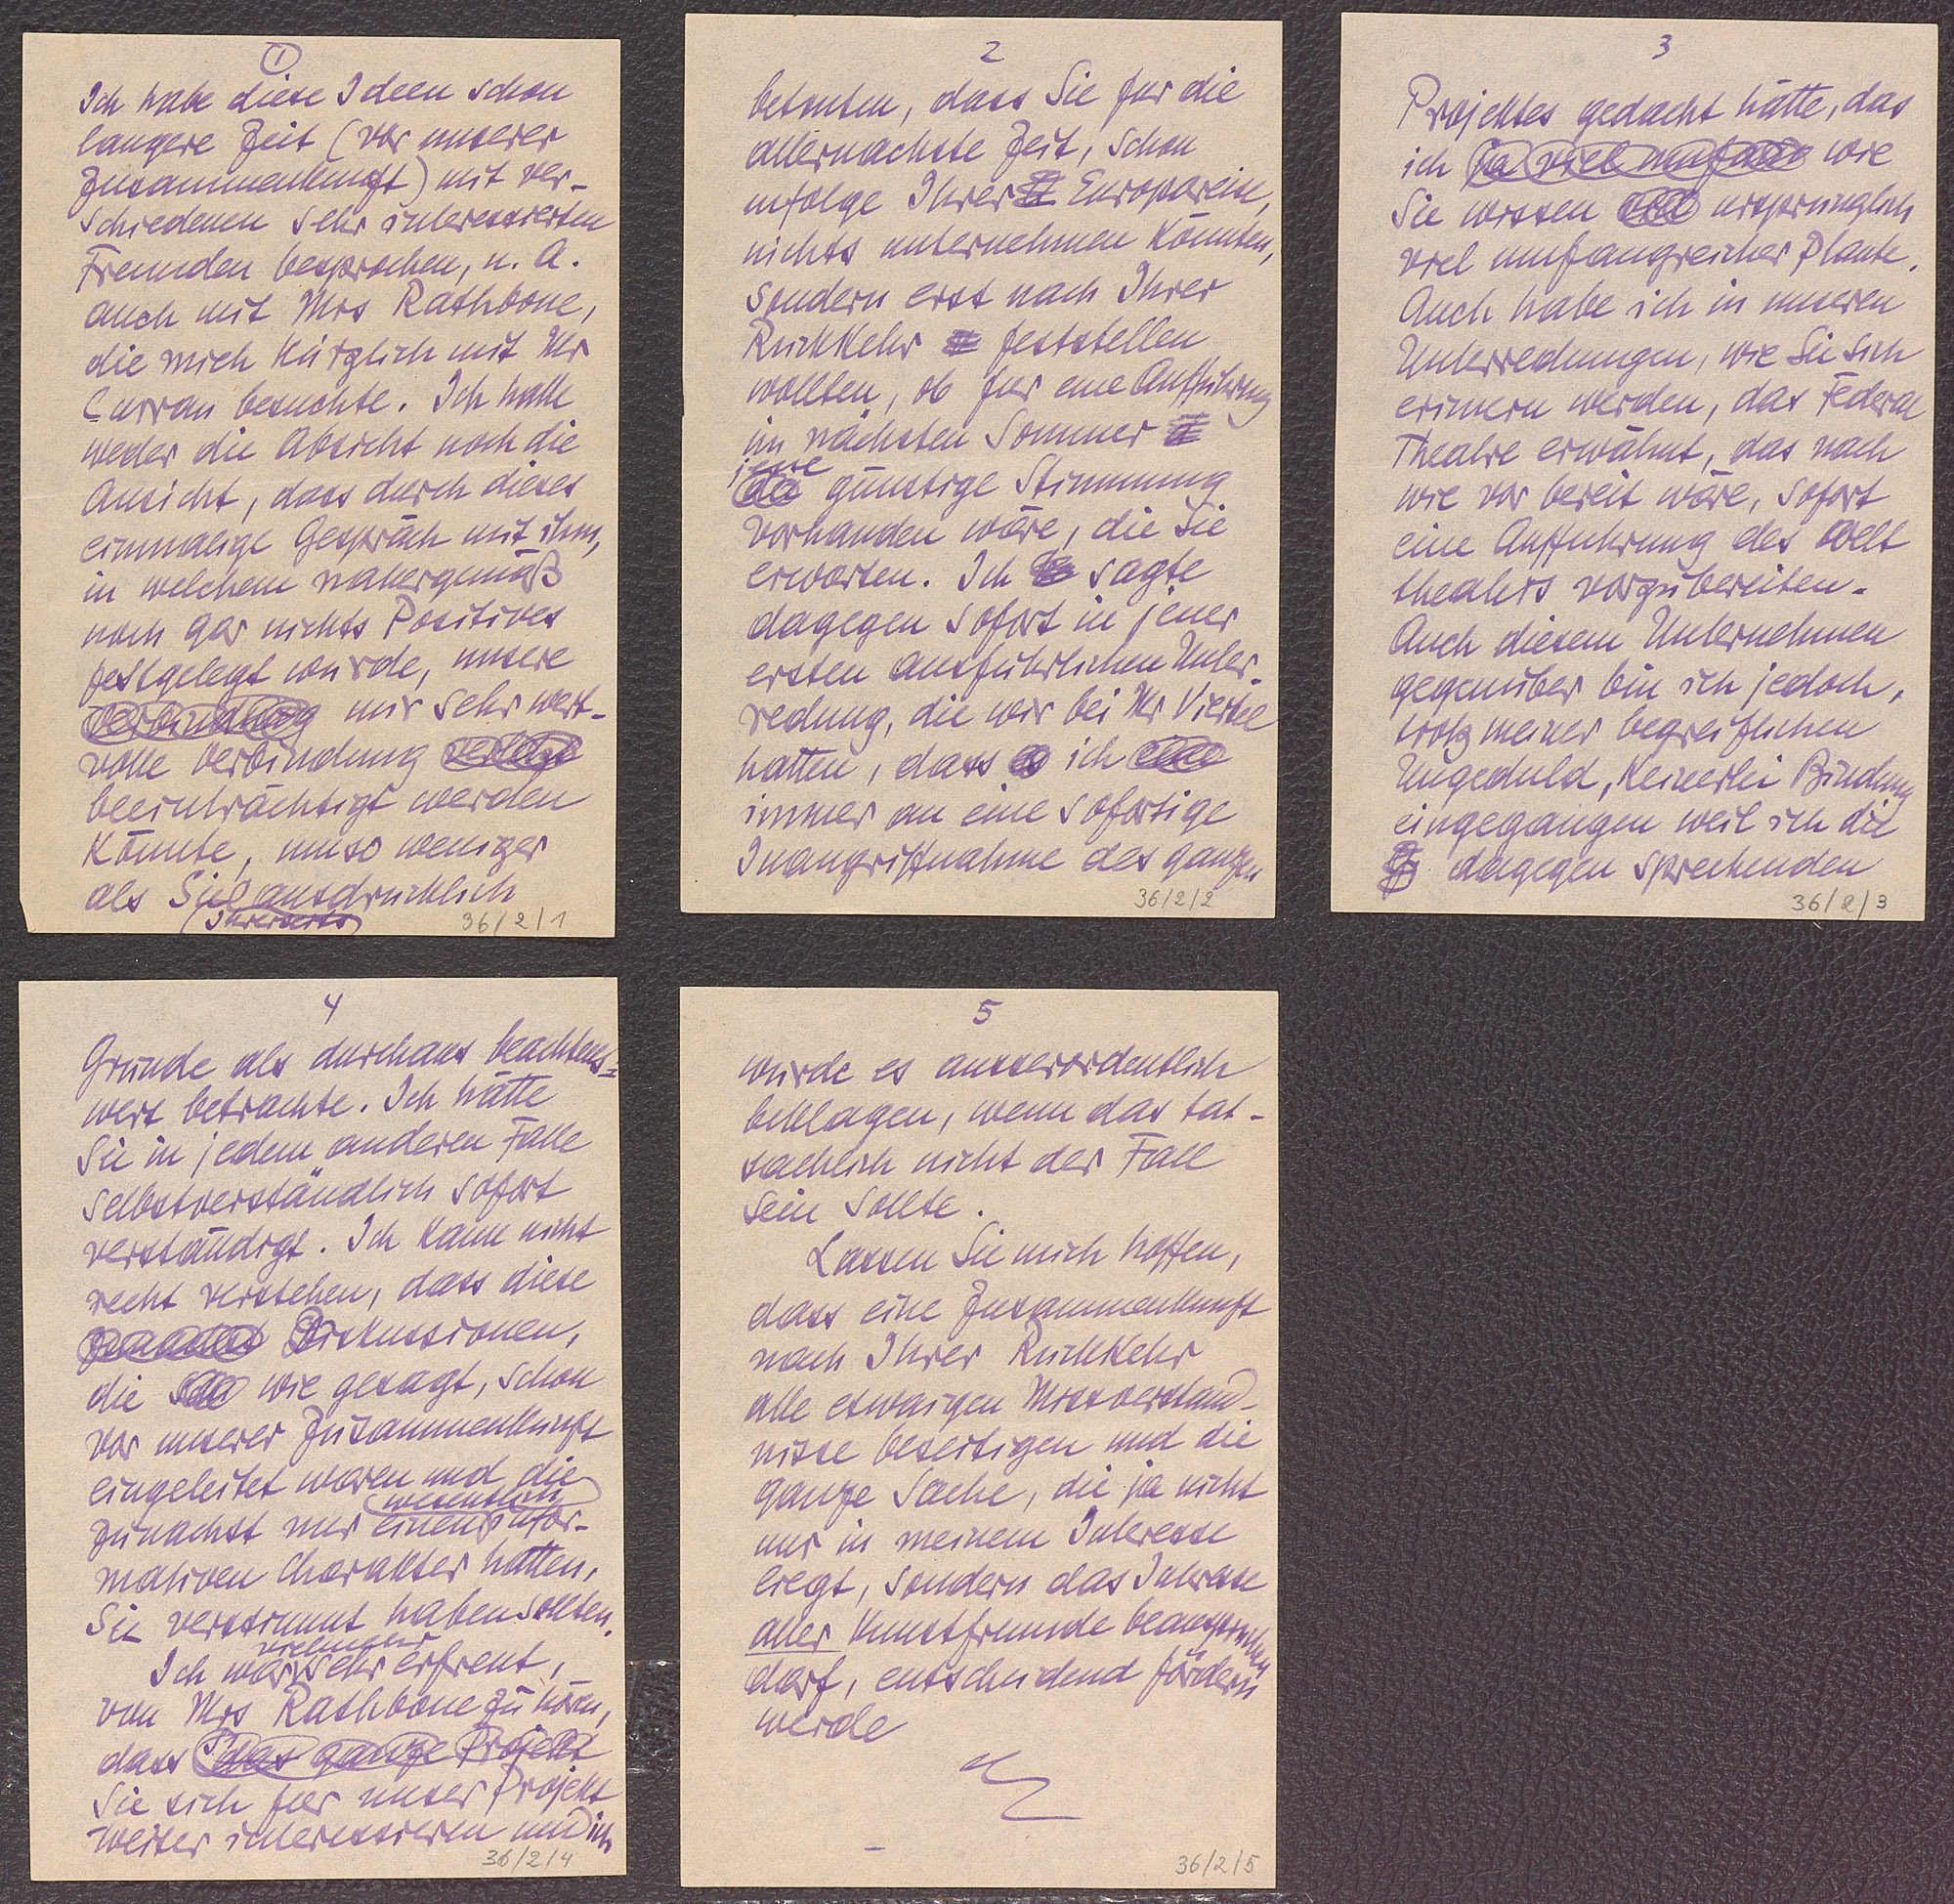 1
Ich habe diese Ideen schon
langere Zeit (vor unserer
Zusammenkunft) mit ver-
schiedenen sehr interessierten
Freunden besprochen, u. A.
auch mit Mrs Rathbone,
die mich kürzlich mit Mr
Curran besuchte. Ich hatte
weder die Absicht noch die
Ansicht, dass durch dieses
einmalige Gespräch mit ihm,
in welchem naturgemäß
noch gar nichts Positives
festgelegt wurde, unsere
Verbindung mir sehr wert-
volle Verbindung verletzt
beeinträchtigt werden
könnte, umso weniger
als Sie ausdrucklich
Ihrerseits
36/2/1
2
betonten, dass Sie fur die
allernachste Zeit, schon
infolge Ihrer Europareise,
nichts unternehmen könnten,
sondern erst nach Ihrer
Ruckkehr feststellen
wollten, ob fur eine Aufführung
im nächsten Sommer
jene
die günstige Stimmung
vorhanden wäre, die Sie
erwarten. Ich sagte
dagegen sofort in jener
ersten ausfuhrlichen Unter-
redung, die wir bei Mr Viertel
hatten, dass ich
immer an eine sofortige
Inangriffnahme des ganzen
36/2/2
3
Projektes gedacht hätte, das
ich ja viel wie
Sie wissen ursprunglich
viel umfangreicher plante.
Auch habe ich in unseren
Unterredungen, wie Sie sich
erinnern werden, das Federal
Theatre erwähnt, das nach
wie vor bereit wäre, sofort
eine Auffuhrung des Welt
theaters vorzubereiten.
Auch diesem Unternehmen
gegenuber bin ich jedoch,
trotz meiner begreiflichen
Ungeduld, keinerlei Bindung
eingegangen weil ich die
dagegen sprechenden
36/2/3
4
Grunde als durchaus beachtens=
wert betrachte. Ich hätte
Sie in jedem anderen Falle
selbstverständlich sofort
verständigt. Ich kann nicht
recht verstehen, dass diese
Diskussionen,
die wie gesagt, schon
vor unserer Zusammenkunft
eingeleitet waren und die
wesentlich
zunachst nur einen infor-
mativen Charakter hatten,
Sie verstimmt haben sollten.
vielmehr
Ich war sehr erfreut,
von Mrs Rathbone zu hören,
dass das ganze Projekt
Sie sich fur unser Projekt
weiter interessieren und ich
36/2/4
5
wurde es ausserordentlich
beklagen, wenn das tat-
sachlich nicht der Fall
sein sollte.
Lassen Sie mich hoffen,
dass eine Zusammenkunft
nach Ihrer Ruckkehr
alle etwaigen Missverstand-
nisse beseitigen und die
ganze Sache, die ja nicht
nur in meinem Interesse
liegt, sondern das Interesse
aller Kunstfreunde beanspruchen
darf, entscheidend fördern
werde
36/2/5